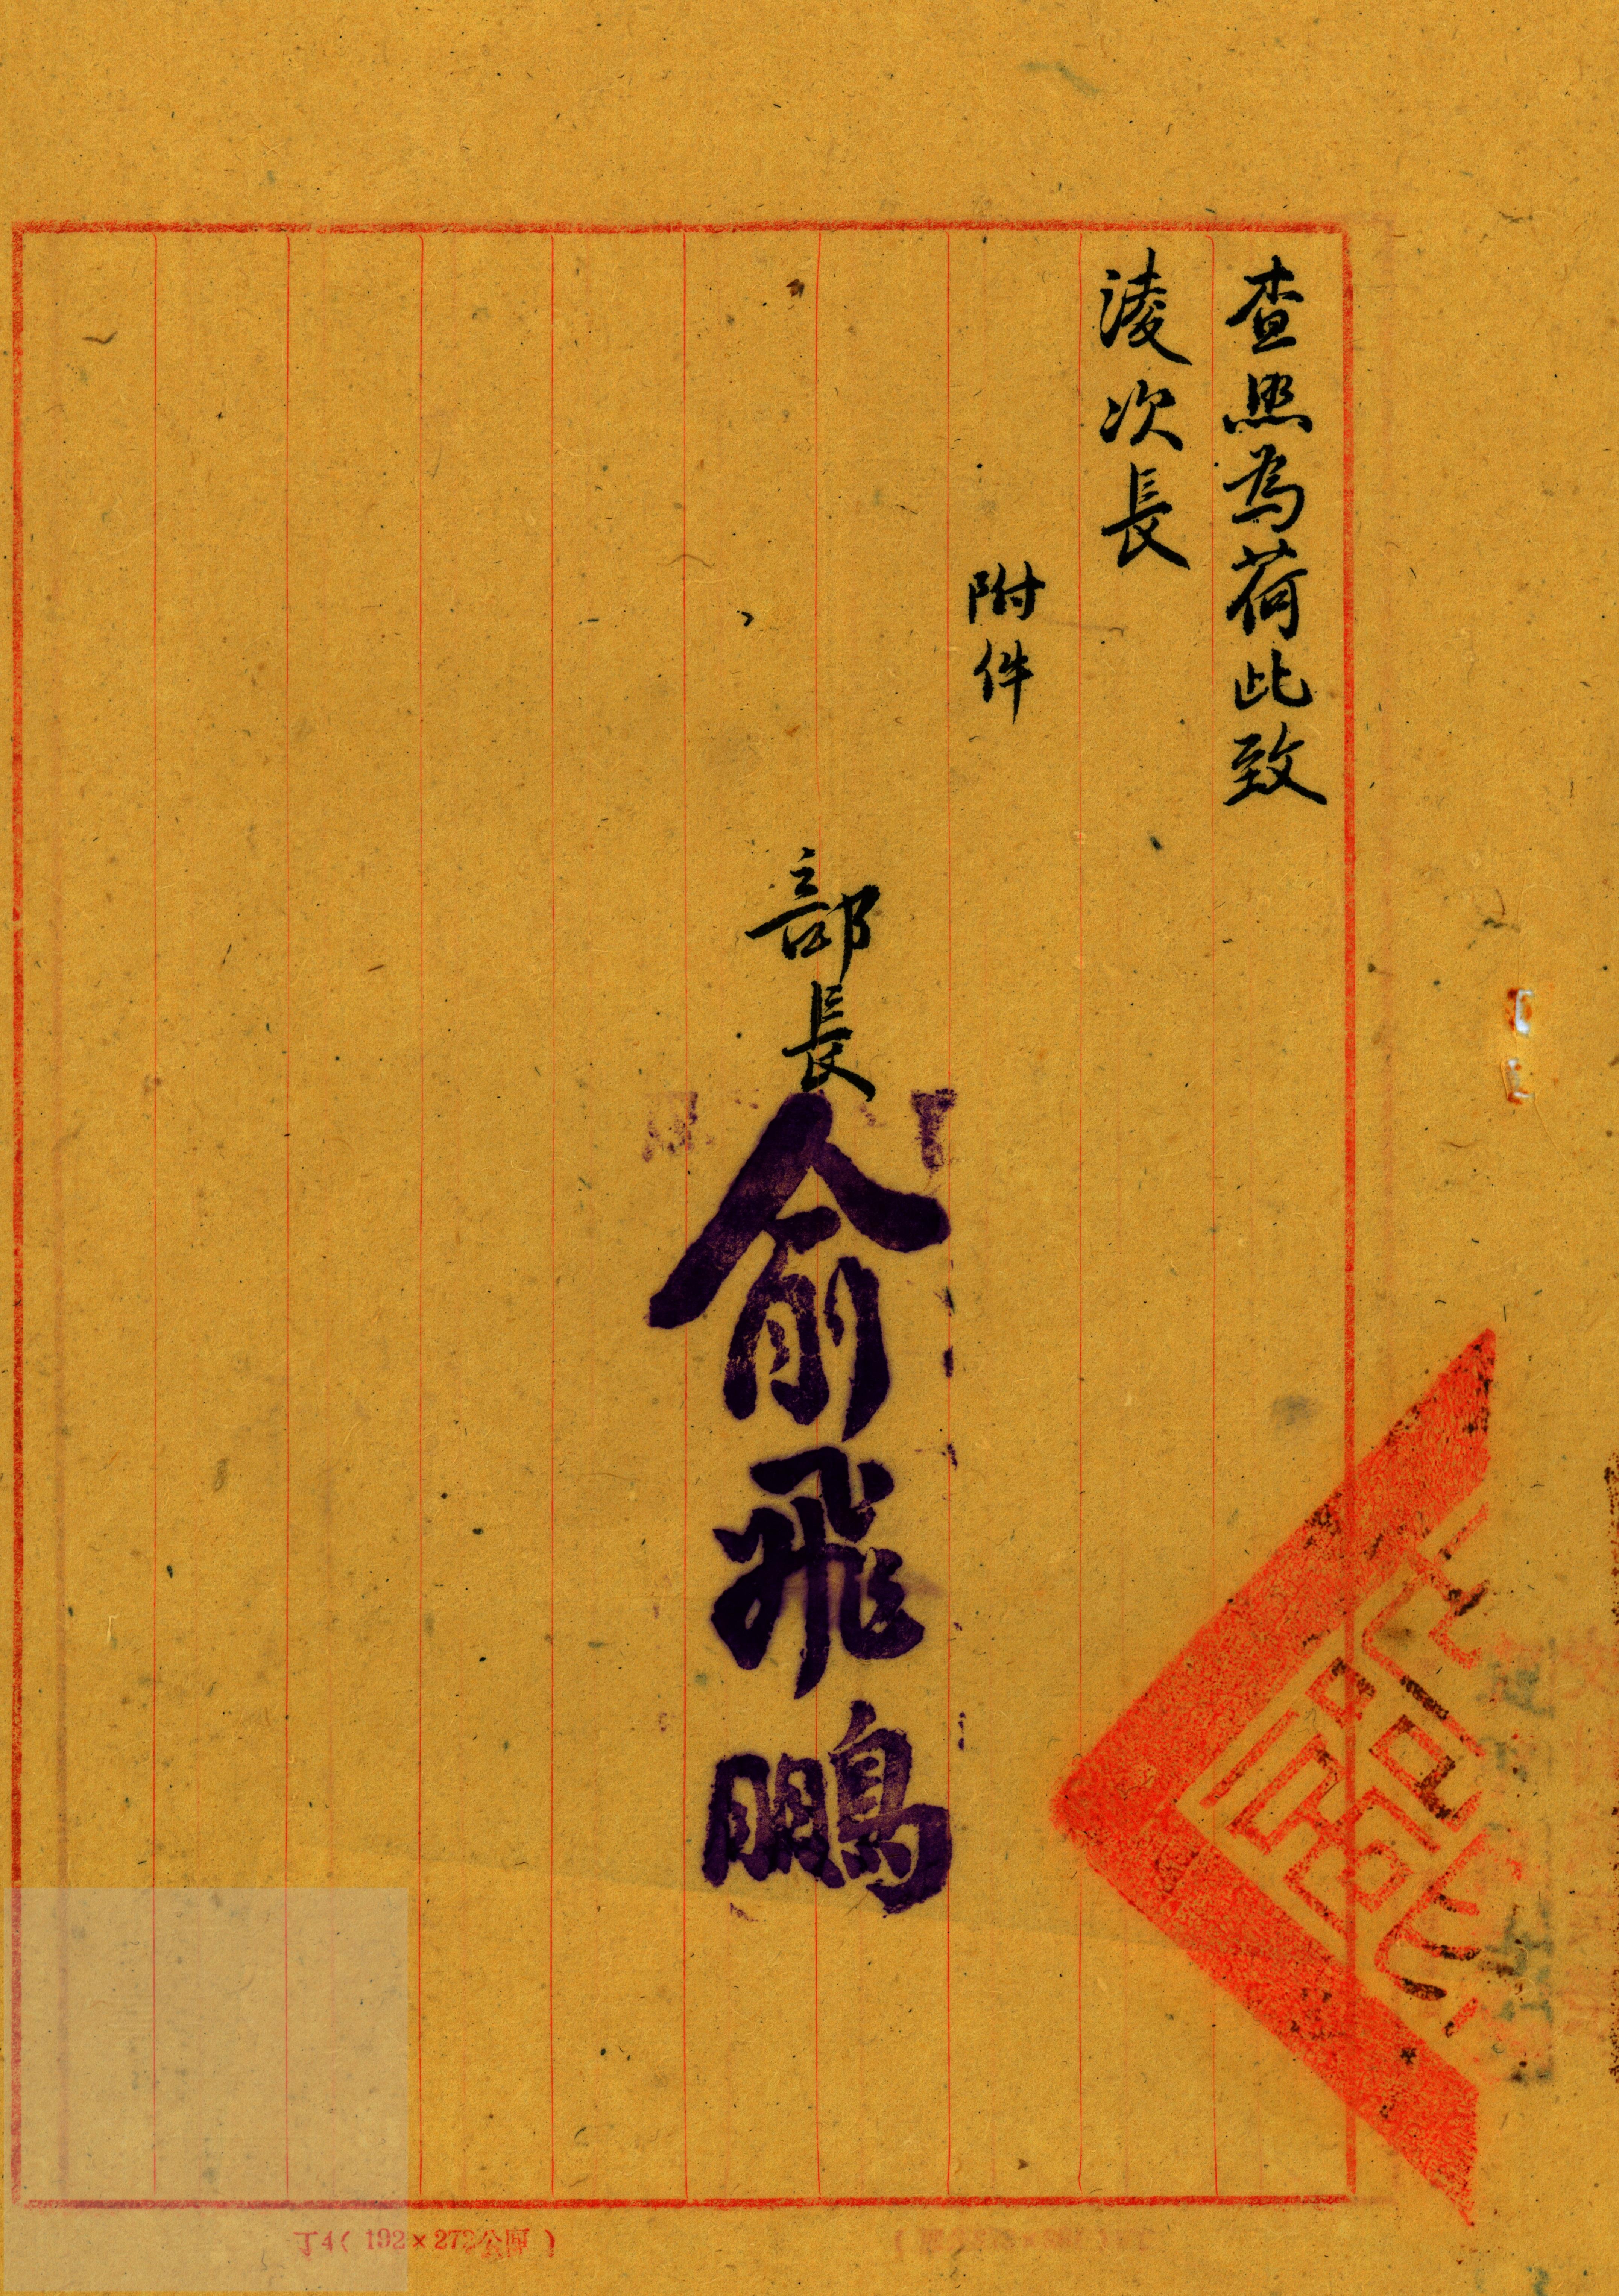 查照為荷此致
淩次長
附件
部長俞飛鵬
14(192×272公厘)